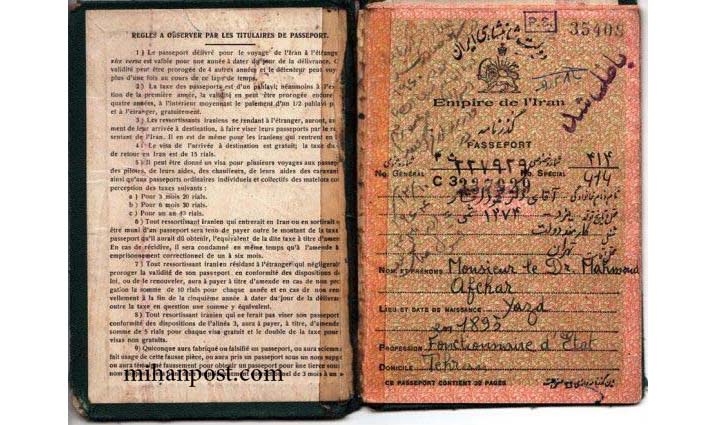 REGLES A OBSERVER PAR LES TITULAIRES DE PASSEPORT.
1) Le passeport délivré pour le voyage de l'Iran à l'étrange
vice versa est valide pour une année à dater du jour de la délivrance. C
validité peut être prorogée de 4 autres années et le détenteur peut voy
plus d'une fois au cours de ce laps de temps.
2) La taxe des passeports est d'un pahlavi; néanmoins à l'ex
tion de la première année, la validité en peut être prorogée encore
quatre années, à l'intérieur moyennant le paiement d'un 1/2 pahlavi p
et à l'étranger, gratuitement.
3) Les ressortissants iraniens se rendant à l'étranger, auront, au
ment de leur arrivée à destination, à faire viser leurs passeports par le re
sentant de l'Iran. Il en est de même pour les iraniens qui rentrent en
4) Le visa de l'arrivée à destination est gratuit; la taxe du
de retour en Iran est de 15 rials.
5) Il peut être donné un visa pour plusieurs voyages aux passep
des pilotes, de leurs aides, des chauffeurs, de leurs aides des caravan
ainsi qu'aux passeports ordinaires individuels et collectifs des matelots co
perception des taxes suivants :
a) Pour 3 mois 20 rials.
b) Pour 6 mois 30 rials.
c) Pour un an 45 rials.
6) Tout ressortissant iranien qui entrerait en Iran ou en sortirait
être muni d'un passeport sera tenu de payer outre le montant de la taxe
passeport qu'il aurait dû obtenir, l'équivalent de la dite taxe à titre d'amen
En cas de récidive, il sera condamné en même temps qu'à l'amende à
emprisonnement correctionnel de un à six mois.
7) Tout ressortissant iranien résidant à l'étranger qui négligerait
proroger la validité de son passeport, en conformité des dispositions de
loi, ou de le renouveler, aura à payer à titre d'amende en cas de non pro
gation la somme de 10 rials pour chaque année et en cas de non ren
vellement à la fin de la cinquième année à dater du jour de la délivra
outre la taxe en question une somme y équivalent.
8) Tout ressortissant iranien qui ne ferait pas viser son passeport
conformité des dispositions de l'alinéa 3, aura à payer, à titre, d'amende
somme de 5 rials pour chaque visa gratuit et le double de la taxe pour
visas non gratuits.
9) Quiconque aura fabriqué ou falsifié un passeport, ou aura sciemm
fait usage de cette fausse pièce, ou aura pris un passeport sous un nom supp
ou aura témoigné faussement pour obtenir un passeport pour une tierce
nnement correctionnel de 3 mois à un
mihanpost.com
P.S.
35408
دولت شاهنشاهی ایران
باطل شد
Empire de l'Iran
گذرنامه
PASSEPORT
۲۳۷۹۲۹
۴۱۴
No. GÉNÉRAL
No. SPÉCIAL
414
آقای دکتر محمود افشار
۱۲۷۴
کارمند دولت
تهران
NOM ET PRÉNOMS Monsieur le Dr. Mahmoud
Afchar
LIEU ET DATE DE NAISSANCE Yazd
en 1895
PROFESSION Fonctionnaire d'Etat
DOMICILE Tehran
CE PASSEPORT CONTIENT 32 PAGES